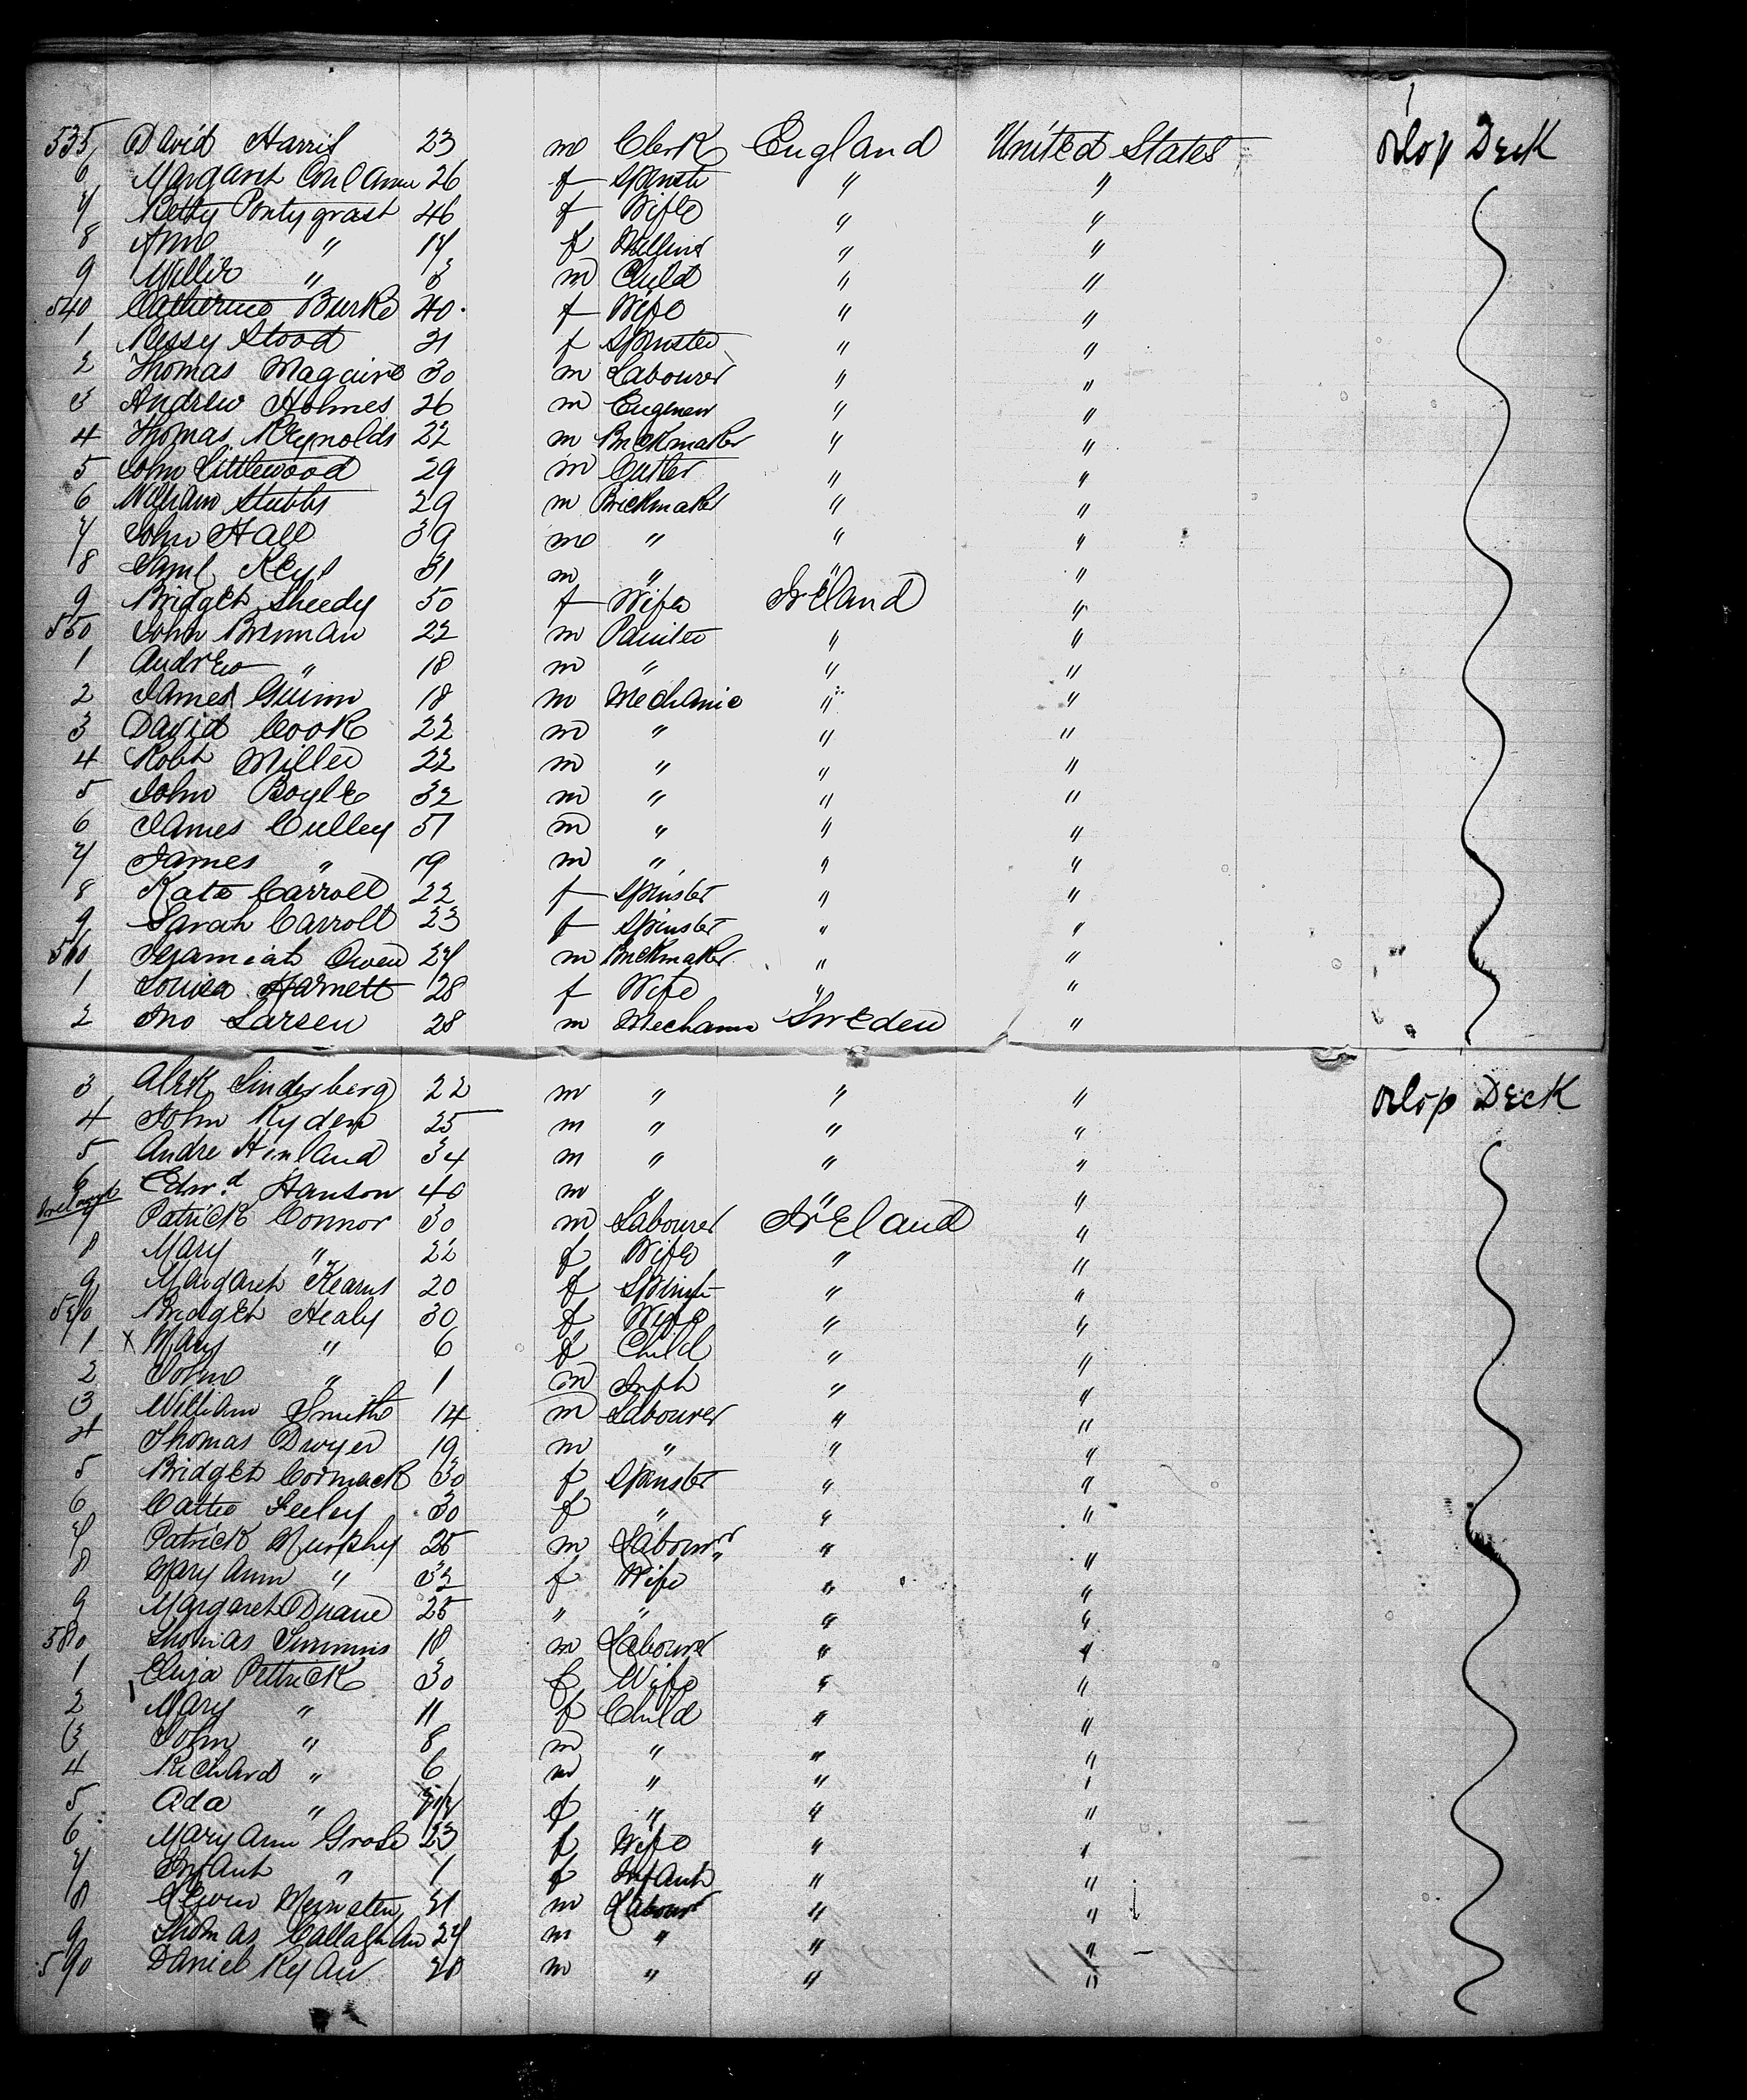 535 David Harris 23 m Clerk England United States Orlop Deck
6 Margaret 26 f Spinster " "
7 Betty Pontygrast 46 f Wife " "
8 Ann " 17 f " "
9 Willie " 3 m Child " "
540 Catherine Burke 40 f Wife " "
1 Stood 21 f Spinster " "
2 Thomas Maguire 30 m Labourer " "
3 Andrew Holmes 26 m " "
4 Thomas Reynolds 22 m Brickmaker " "
5 John Littlewood 29 m Cutler " "
6 William Stubbs 29 m Brickmaker " "
7 John Hall 39 m " " "
8 Saml Keys 31 m " " "
9 Bridget Sheedy 50 f Wife Ireland "
550 John Brennan 22 m Painter " "
1 Andrew " 18 m " " "
2 James Guinn 18 m Mechanic " "
3 David Cook 22 m " " "
4 Robt Miller 22 m " " "
5 John Boyle 32 m " " "
6 James Culley 51 m " " "
7 James " 19 m " " "
8 Kate Carroll 22 f Spinster " "
9 Sarah Carroll 23 f Spinster " "
560 Jeramiah Owen 27 m Brickmaker " "
1 Louisa Harnett 28 f Wife " "
2 Jno Larsen 28 m Mechanic Sweden "
3 Alex Linderberg 22 m " " " Orlop Deck
4 John Ryden 25 m " " "
5 Andre Hinland 34 m " " "
6 Edwd Hanson 40 m " " "
Ireland
7 Patrick Connor 30 m Labourer Ireland "
8 Mary " 22 f Wife " "
9 Margaret Kearns 20 f Spinst " "
570 Bridget Healy 30 f Wife " "
1 x Mary " 6 f Child " "
2 John " 1 m Inft " "
3 William Smith 14 m Labourer " "
4 Thomas Dwyer 19 m " " "
5 Bridget Cormack 30 f Spinster " "
6 Feeley 30 f " " "
7 Patrick Murphy 25 m Labourer " "
8 Mary Ann " 32 f Wife " "
9 Margaret Duane 25 " " " "
580 Thomas Simmins 18 m Labourer " "
1 Eliza Pettrick 30 f Wife " "
2 Mary " 11 f Child " "
3 John " 8 m " " "
4 Richard " 6 m " " "
5 Ada " f " " "
6 Mary Ann Grose 23 f Wife " "
7 Infant " 1 f Infant " "
8 21 m Labour " "
9 Thomas Callaghan 27 m " " "
590 Daniel Ryan 20 m " " "